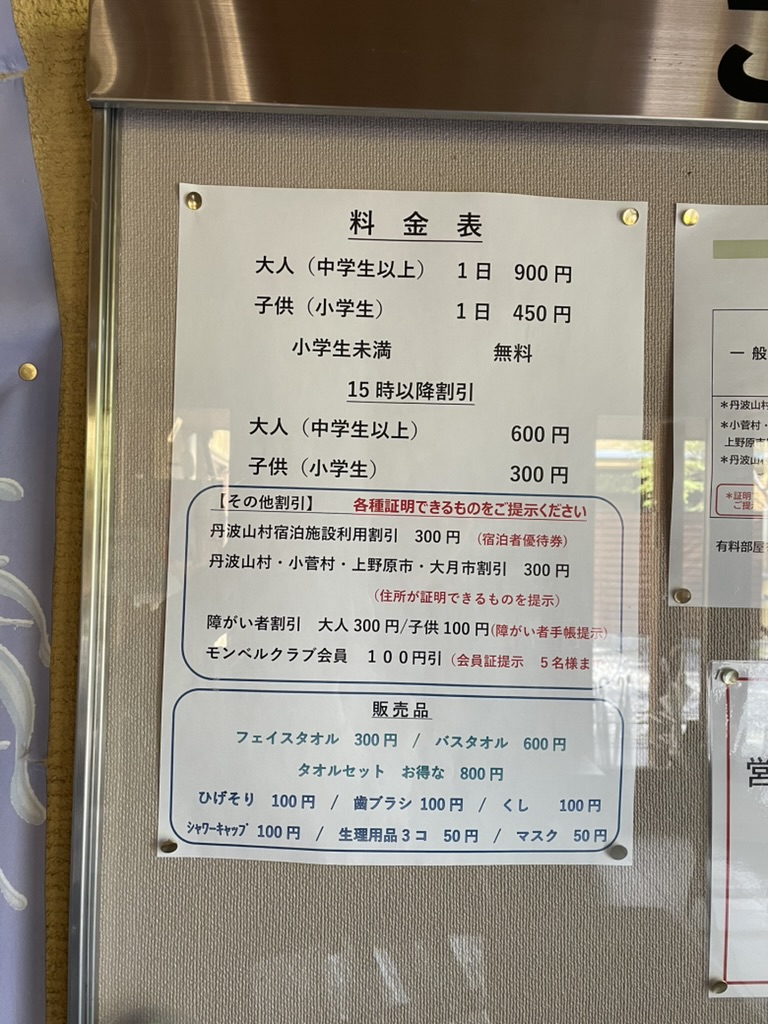 料 金 表
大人（中学生以上） 1日 900円
子供（小学生） 1日 450円
小学生未満 無料
15時以降割引
大人（中学生以上） 600円
子供（小学生） 300円
【その他割引】 各種証明できるものをご提示ください
丹波山村宿泊施設利用割引 300円 （宿泊者優待券）
丹波山村・小菅村・上野原市・大月市割引 300円
（住所が証明できるものを提示）
障がい者割引 大人300円/子供100円(障がい者手帳提示)
モンベルクラブ会員 １００円引（会員証提示 5名様ま
販売品
フェイスタオル 300円 / バスタオル 600円
タオルセット お得な 800円
ひげそり 100円 / 歯ブラシ 100円 / くし 100円
ｼｬﾜｰｷｬｯﾌﾟ 100円 / 生理用品3コ 50円 / マスク 50円
一 般
＊丹波山村
＊小菅村・
上野原市
＊丹波山
＊証明
ご提
有料部屋
営